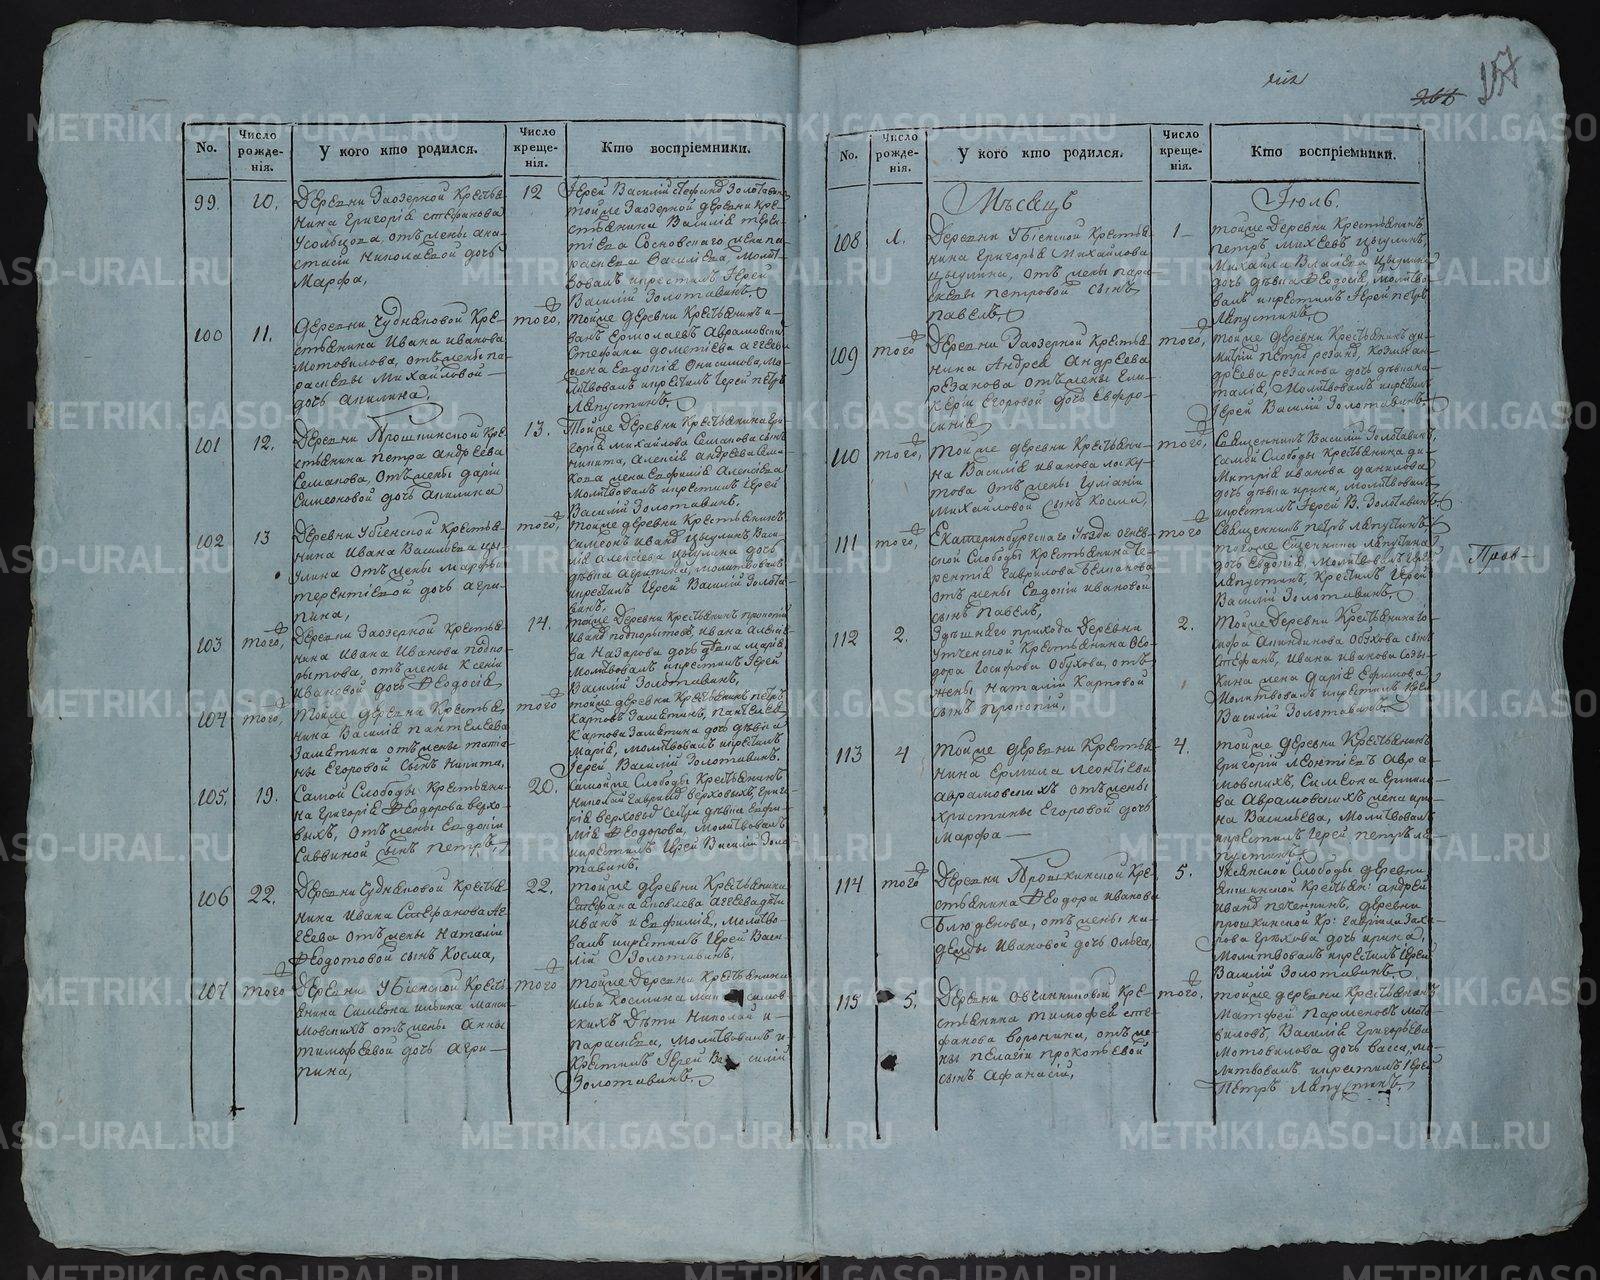 лія
257
No.
Число рожде-нія.
У кого кто родился.
Число креще-нія.
Кто воспріемники.
99.
10.
Деревни Заозерной Крестья-
нина Григорія Стефанова
Усольцова, отъ жены Ана-
стасіи Николаевой дочь
Марфа,
12
Іерей Василій Стефанд Золотавинъ
тойже Заозерной деревни Кре-
стьянина Василія Терен-
тіева Сосновскаго жена Па-
раскева Васильева, Молит-
вовалъ икрестилъ Іерей
Василій Золотавинъ.
100
11.
Деревни Чуднаковой Кре-
стьянина Ивана Иванова
Мотовилова, отъ жены Па-
раскевы Михайловой
дочь Акилина,
того,
тойже деревни Крестьянинъ И-
ванъ Ермолаевъ Аврамовски
Стефана Дометіева Агеева
жена Евдокія Онисимова, Мо-
литвовалъ икрестилъ Іерей Петръ
Ляпустинъ.
101
12.
Деревни Прошкинской Кре-
стьянина Петра Андреева
Семакова, отъ жены Даріи
Симеоновой дочь Акилина
13.
Тойже Деревни Крестьянина Гри-
горія Михайлова Семакова сынъ
Никита, Алексія Андреева Сема-
кова жена Евфимія Алексіева
Молитвовалъ икрестилъ Іерей
Василій Золотавинъ.
102
13
Деревни Убіенской Крестья-
нина Ивана Васильева Цы-
гулина отъ жены Марфы
Терентіевой дочь Агри-
пина,
того,
тойже деревни Крестьянинъ
Симеонъ Иванд Цыгулинъ Васи-
лія Алексіева Цыгулина дочь
дѣвка Агрипина, молитвовалъ
икрестилъ Іерей Василій Золота-
винъ.
103
того,
Деревни Заозерной Крестья-
нина Ивана Иванова Подко-
рытова, отъ жены Ксеніи
Ивановой дочь Ѳеодосія
14.
тойже Деревни Крестьянинъ Прокопій
Иванд Подкорытовъ, Ивана Алексіе-
ва Назарова дочь дѣвка Марія
Молитвовалъ икрестилъ Іерей
Василій Золотавинъ,
104
того,
Тойже деревни Крестья-
нина Василія Пантелеева
Замятина отъ жены Татія-
ны Егоровой сынъ Никита,
того
тойже деревни Крестьянинъ Петръ
Карповъ Замятинъ, Пантелея
Карпова Замятина дочь дѣвка
Марія, молитвовалъ икрестилъ
Іерей Василій Золотавинъ.
105,
19.
Самой Слободы Крестьяни-
на Григорія Ѳеодорова Верхо-
выхъ, отъ жены Евдокіи
Саввиной сынъ Петръ,
20.
Самойже Слободы Крестьянинъ
Николай Гаврилд Верховыхъ, Григо-
рія Верховыхъ сестра дѣвка Евфи-
мія Ѳеодорова, Молитвовалъ
икрестилъ Іерей Василій Золо-
тавинъ.
106
22.
Деревни Чуднаковой Крестья-
нина Ивана Стефанова Аг-
геева отъ жены Наталіи
Ѳеодотовой сынъ Косма,
22.
тойже деревни Крестьянина
Стефана Яковлева Аггеева дѣти
Иванъ и Евфимія, Молитво-
валъ икрестилъ Іерей Васи-
лій Золотавинъ.
107
того
Деревни Убіенской Кресть-
янина Симеона Ильина Макси-
мовскихъ отъ жены Анны
Тимофеевой дочь Агри-
пина,
того
тойже Деревни Крестьянина
Ильи Космина Максимов-
скихъ Дѣти Николай и
Параскева, Молитвовалъ и
Крестилъ Іерей Василій
Золотавинъ.
No.
Число рожде-нія.
У кого кто родился.
Число креще-нія.
Кто воспріемники.
Мѣсяцъ
Іюль.
108
1.
Деревни Убіенской Крестья-
нина Григорья Михайлова
Цыгулина, отъ жены Пара-
скевы Петровой сынъ
Павелъ,
1
тойже Деревни Крестьянинъ
Петръ Михеевъ Цыгулинъ,
Михайла Власіева Цыгулина
дочь дѣвка Ѳеодосія, молитво-
валъ икрестилъ Іерей Петръ
Ляпустинъ
109
того
Деревни Заозерной Крестья-
нина Андрея Андреева
Резанова отъ жены Гли-
керіи Егоровой дочь Евфро-
синія
того,
тойже деревни Крестьянинъ Ди-
митрій Петрд Резанд, Козмы Ан-
дреева Резанова дочь дѣвка На-
талія Молитвовалъ икрестилъ
Іерей Василій Золотавинъ.
110
того,
Тойже деревни Крестьяни-
на Василія Иванова Лоску-
това отъ жены Іуліаніи
Михайловой Сынъ Косма,
того,
Священникъ Василій Золотавинъ,
Самой Слободы Крестьянина Ди-
митрія Иванова Данилова
дочь дѣвка Ирина, молитвовалъ
икрестилъ Іерей В. Золотавинъ.
111
того,
Екатеринбургскаго Уѣзда Огнев-
ской Слободы Крестьянина Те-
рентія Гаврилова Бѣликова
отъ жены Евдокіи Ивановой
сынъ Павелъ,
того
Священникъ Петръ Ляпустинъ
тогоже Священника Ляпустина
дочь Евдокія, Молитвовалъ Іерей
Ляпустинъ, Крестилъ Іерей
Василій Золотавинъ.
112
2.
Здѣшняго прихода Деревни
Утченской Крестьянина Ѳео-
дора Госифова Обухова, отъ
жены Наталіи Карповой
сынъ Прокопій,
2.
Тойже Деревни Крестьянина
Стефанъ, Ивана Иванова
жена Дарія Ефимова
Молитвовалъ икрестилъ Іерей
Василій Золотавинъ.
113
4
Тойже деревни Крестья-
нина Ермила Леонтіева
Аврамовскихъ отъ жены
Христины Егоровой дочь
Марфа
4.
тойже деревни Крестьянинъ
Григорій Леонтіевъ Авра-
мовскихъ, Симеона Ермило-
ва Аврамовскихъ жена Ири-
на Васильева, Молитвовалъ
икрестилъ Іерей Петръ Ля-
пустинъ.
114
того
Деревни Прошкинской Кре-
стьянина Ѳеодора Иванова
Блюденова, отъ жены На-
дежды Ивановой дочь Ольга,
5.
Уксянской Слободы деревни
Крестьян: Андрей
Иванд Печенкинъ, Деревни
Прошкинской Кр: Гаврила Заха-
рова Грѣхова дочь Ирина,
Молитвовалъ икрестилъ Іерей
Василій Золотавинъ.
115
5.
Деревни Овчинниковой Кре-
стьянина Тимофея Сте-
фанова Воронина, отъ же-
ны Пелагіи Прокопьевой
сынъ Афанасій,
того,
тойже деревни Крестьянинъ
Матфей Парменовъ Мото-
виловъ, Василія Григорьева
Мотовилова дочь Васса, Мо-
литвовалъ икрестилъ Іерей
Петръ Ляпустинъ.
METRIKI.GASO-URAL.RU